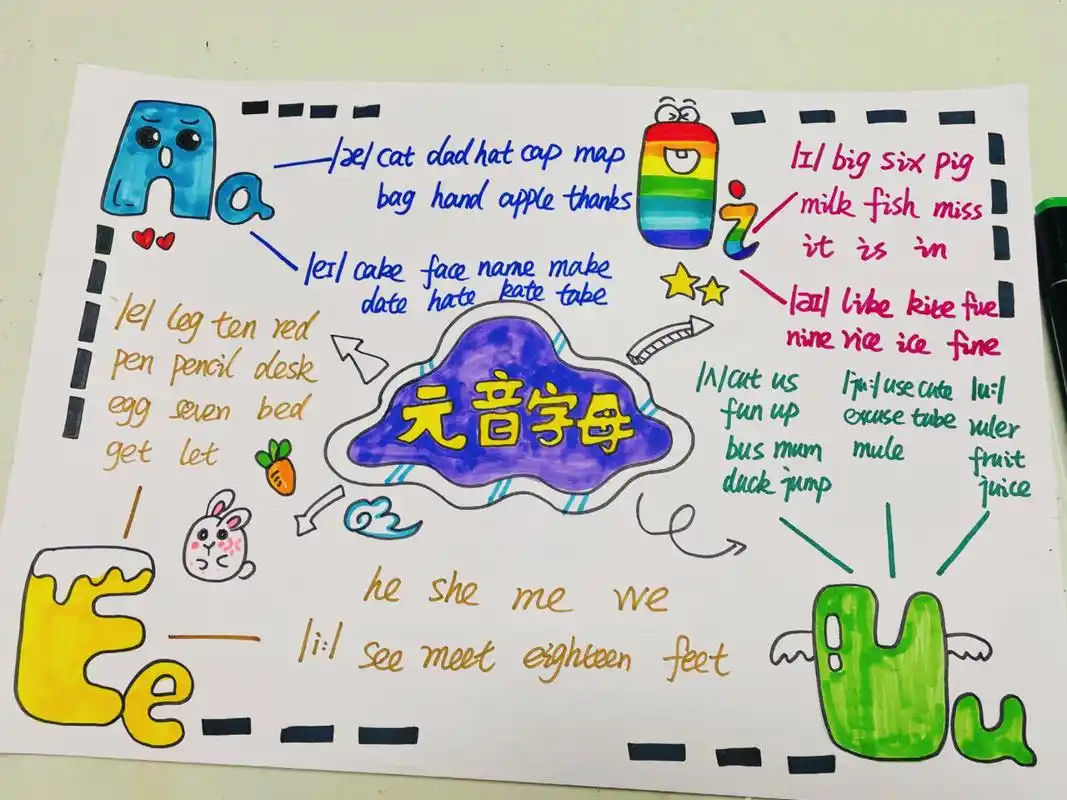 Aa
/æ/ cat dad hat cap map
bag hand apple thanks
/eɪ/ cake face name make
date hate kate take
Ii
/ɪ/ big six pig
milk fish miss
it is in
/aɪ/ like kite five
nine rice ice fine
元音字母
/e/ leg ten red
pen pencil desk
egg seven bed
get let
Ee
/i:/
he she me we
see meet eighteen feet
/ʌ/ cut us
fun up
bus mum
duck jump
/ju:/ use cute
excuse tube
mule
/u:/
ruler
fruit
juice
Uu